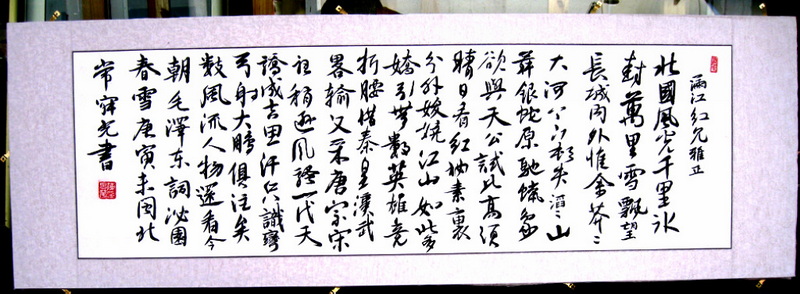 滿江紅兄雅正
北國風光千里冰
封萬里雪飄望
長城内外惟余莽〻
大河上下頓失滔〻山
舞銀蛇原馳蠟象
欲與天公試比高須
晴日看紅妝素裹
分外妖嬈江山如此多
嬌引無數英雄競
折腰惜秦皇漢武
畧輸文采唐宗宋
祖稍遜風騷一代天
驕成吉思汗只識彎
弓射大鵰俱往矣
數風流人物還看今
朝毛澤東詞沁園
春雪庚寅末閩北
常光書